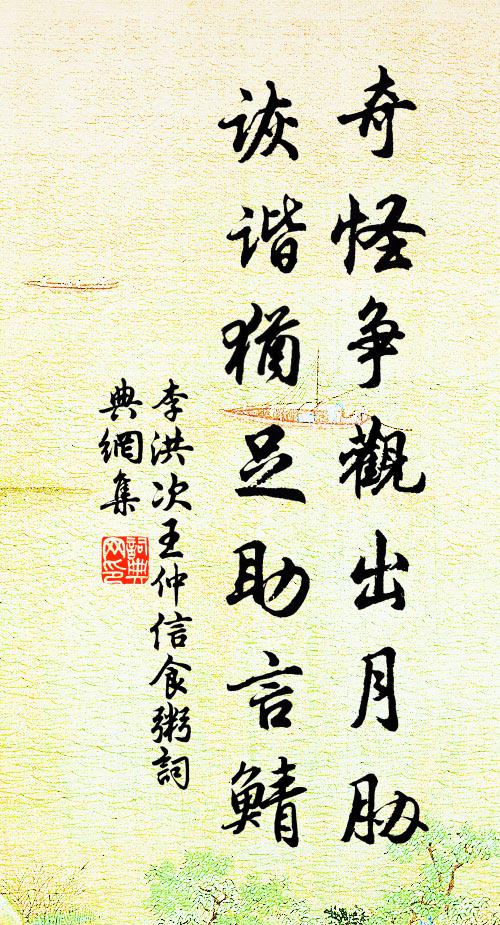 奇怪争觀出月胁
诙谐犹足助言鯖
李洪次王仲信食粥詞
典網集
詞典网印